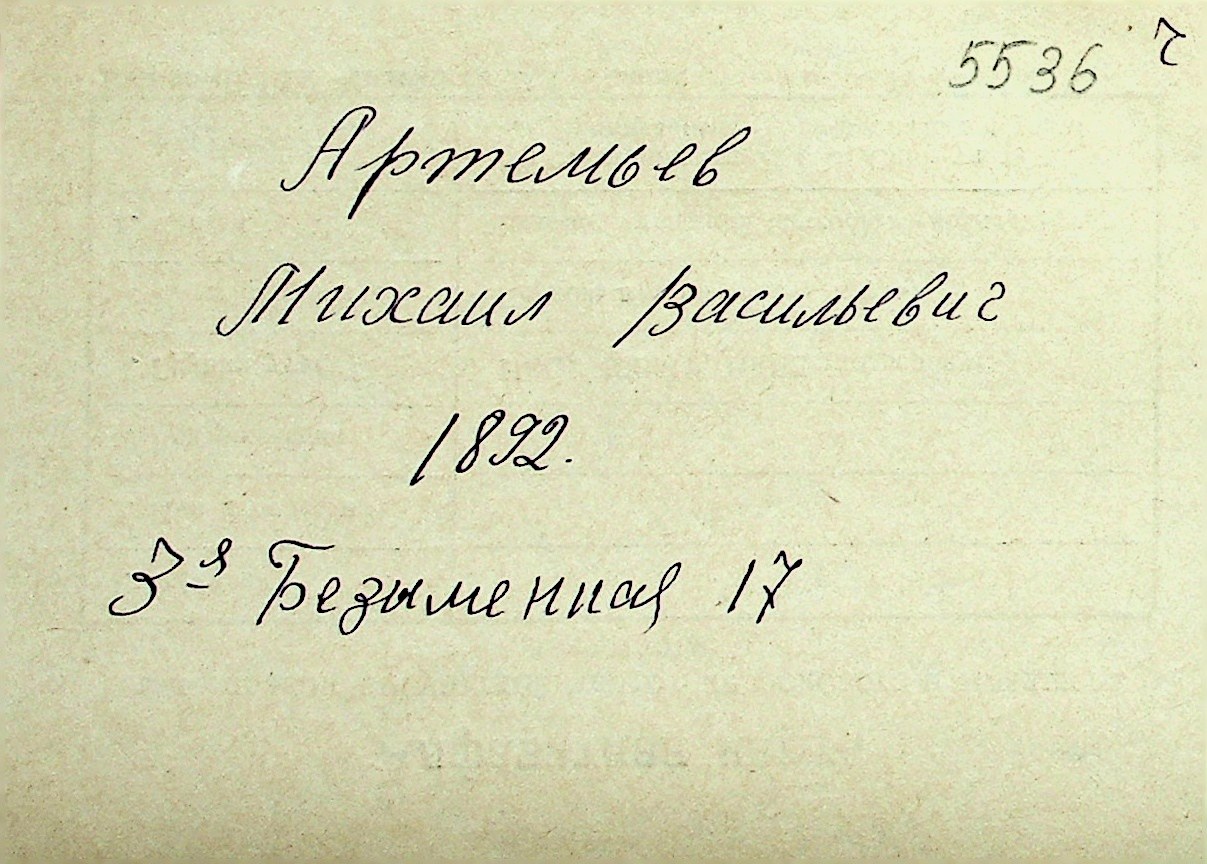 5536 ч
Артемьев
Михаил Васильевич
1892.
3я Безыменная 17